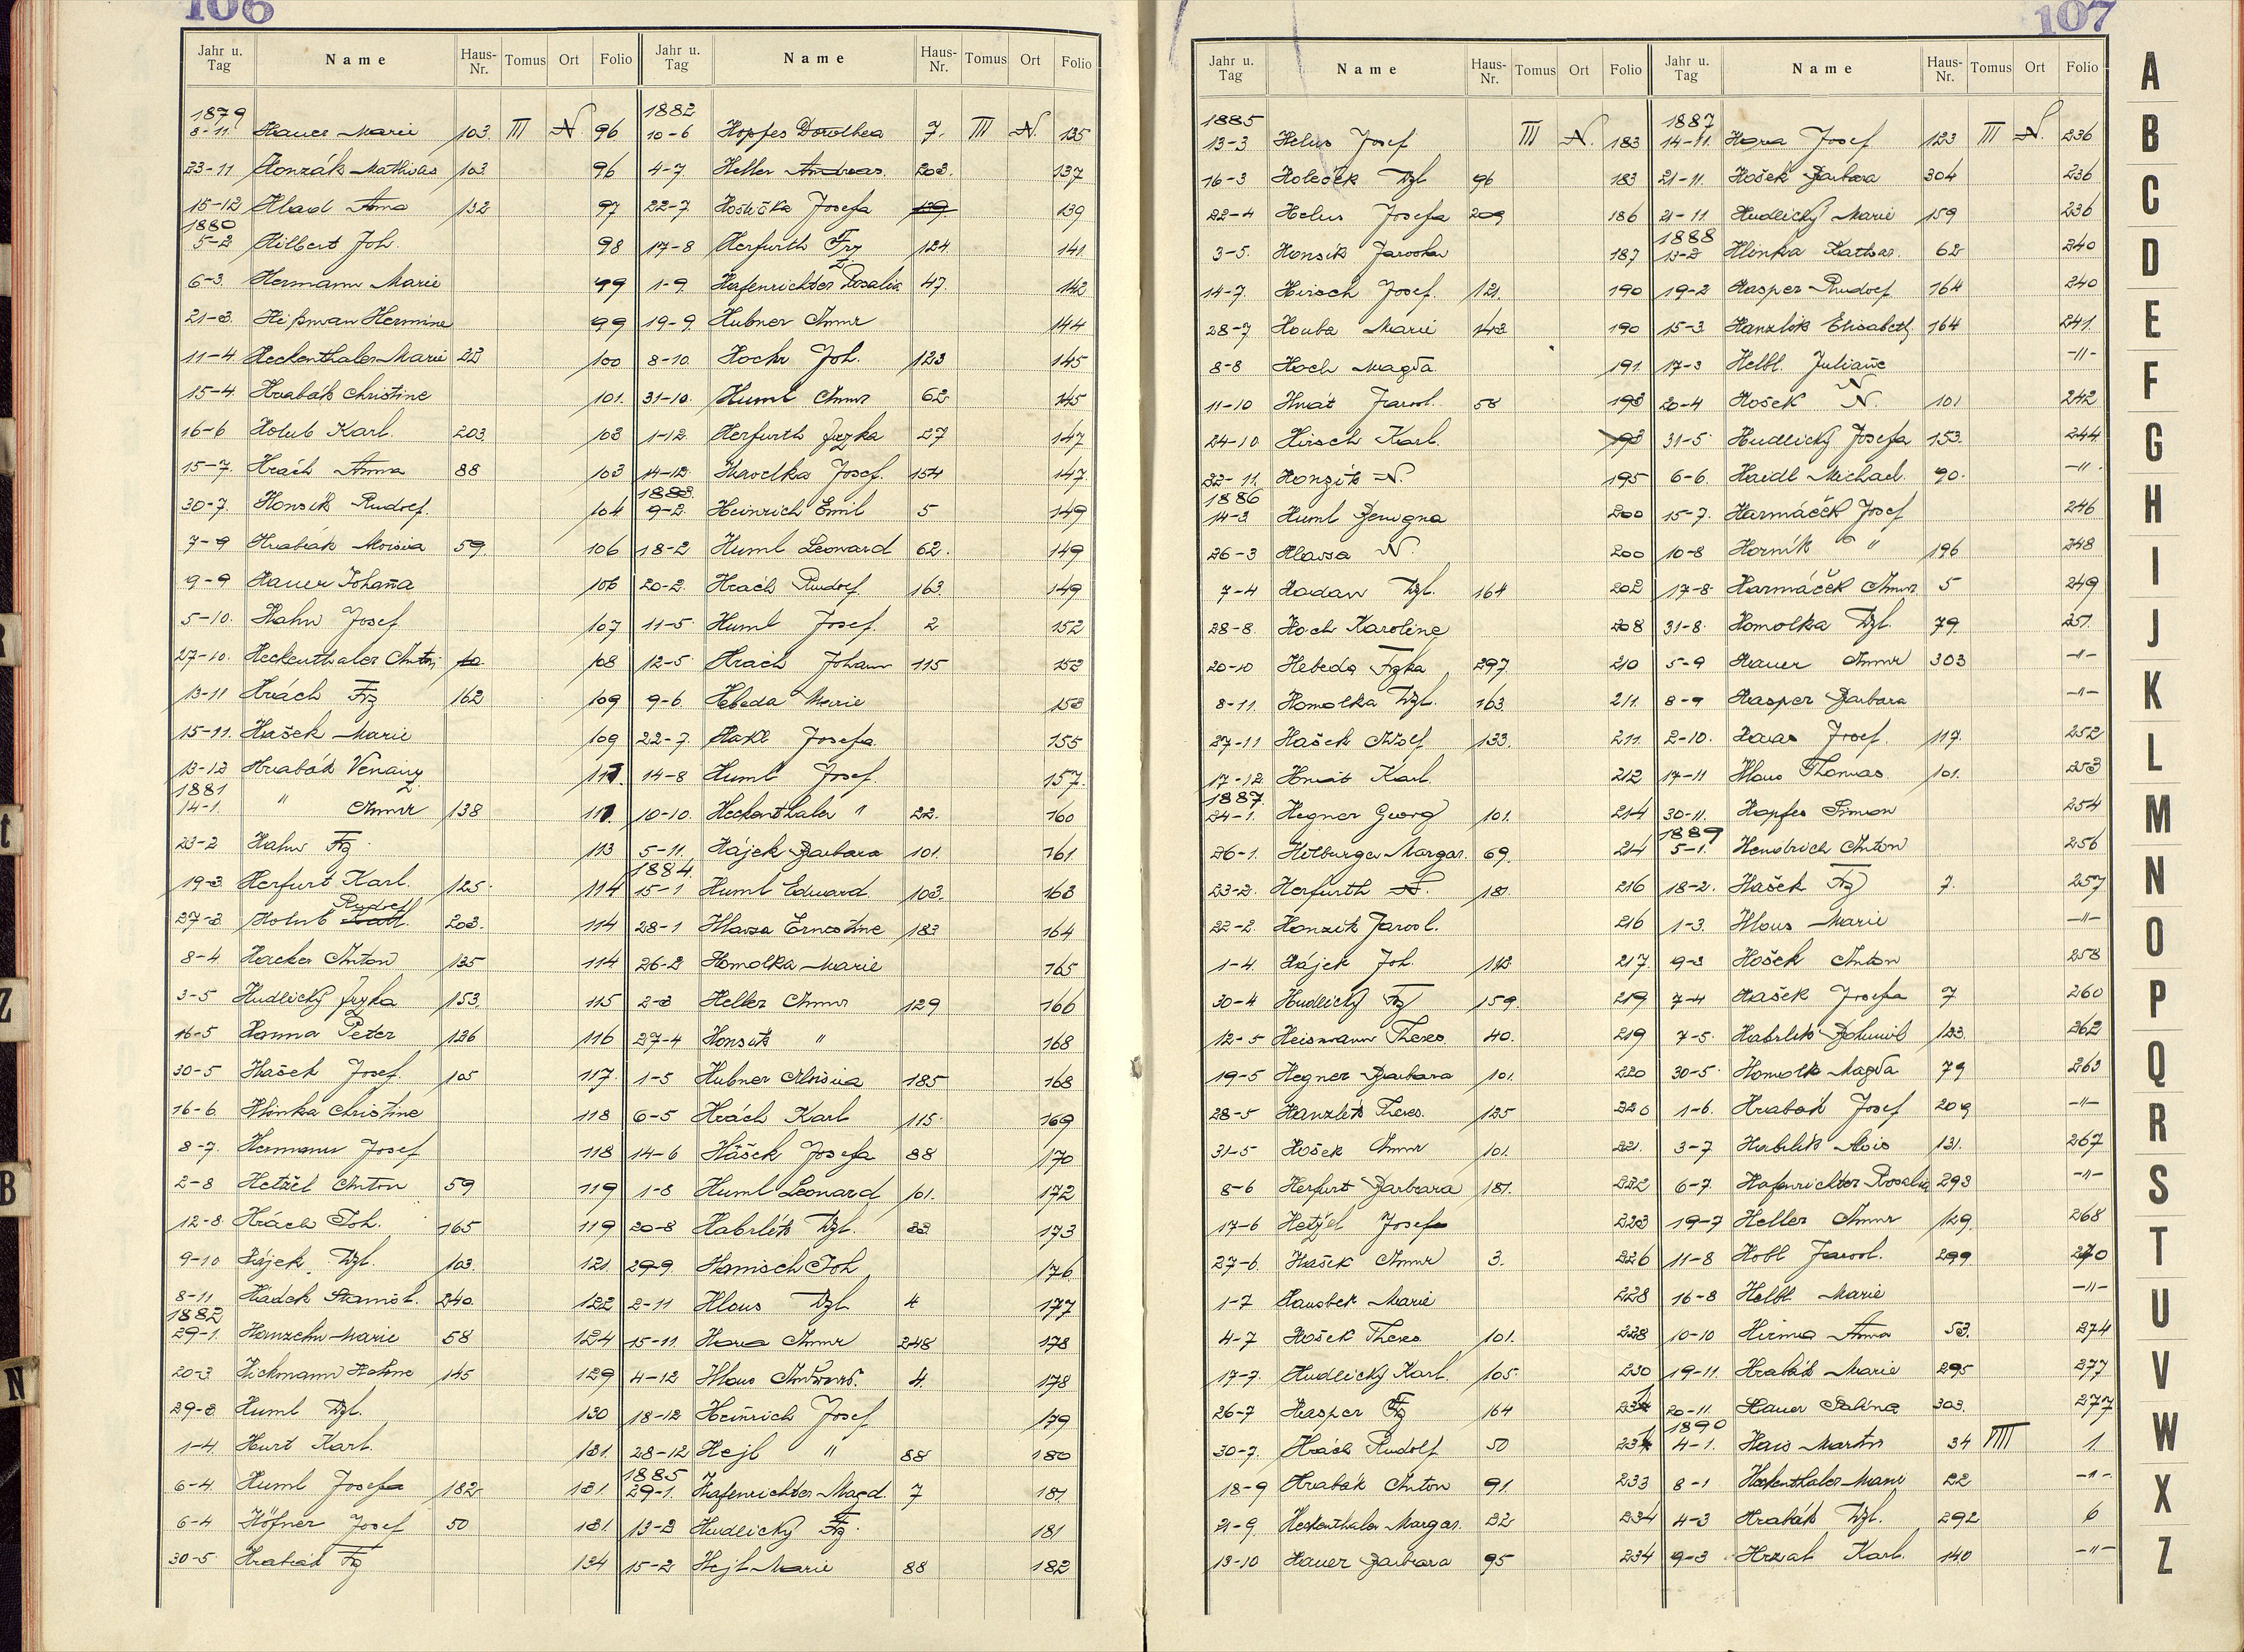 106
Jahr u. Tag Name Haus-Nr. Tomus Ort Folio
1879
8-11. Hauer Marie 103. III N. 96
23-11 Honzák Mathias 103. 96
15-12 Hlad Anna 132 97
1880
5-2 Hilbert Joh. 98
6-3. Hermann Marie 99
21-3. Heißman Hermine 99
11-4. Heckenthaler Marie 22 100
15-4. Hrabák Christine 101.
16-6 Holub Karl. 203. 103
15-7. Hrách Anna 88 103
30-7. Honsik Rudolf. 104
7-9 Hrabák Aloisia 59. 106
9-9 Hauer Johana 106
5-10. Hahn Josef 107
27-10. Heckenthaler Anton 10. 108
13-11 Hrách Frz 162 109
15-11. Hašek Marie 109
13-12 Hrabák Venanz 111.
1881
14-1. " Anna 138 111.
23-2 Hahn Frz. 113
19-3. Herfurt Karl. 125. 114
27-3 Holub Rudolf 203. 114
8-4. Hacker Anton 135 114
3-5 Hudlický Frzka 153. 115
16-5 Hanna Peter 126 116
30-5 Hašek Josef. 105 117.
16-6 Hlinka Christine 118
8-7. Hermann Josef 118
2-8 Hetžel Anton 59 119
12-8. Hrách Joh. 165 119
9-10 Hájek Wzl. 103. 121.
8-11 Hádek Stanisl. 240. 122
1882
29-1. Hanzehn Marie 58 124
20-3 Hickmann Helene 145 129
29-3. Huml Wzl. 130
1-4. Hurt Karl. 131.
6-4. Huml Josefa 182 131.
6-4 Höfner Josef 50 131.
30-5. Hrabák Frz 134
Jahr u. Tag Name Haus-Nr. Tomus Ort Folio
1882
10-6 Hopfes Dorothea 7. III N. 135
4-7. Heller Andreas. 203. 137
22-7. Hostička Josefa 139 139
17-8 Herfurth Frz 124. 141.
1-9. Hafenrichter Rosalia 47. 142
19-9. Hubner Anna 144
8-10. Hochr Joh. 123 145
31-10. Huml Anna 62 145
1-12. Herfurth Frzka 27 147
14-12. Havelka Josef. 154 147.
1883.
9-2. Heinrich Emil 5 149
18-2 Huml Leonard 62. 149
20-2. Hrách Rudolf. 163. 149
11-5 Huml Josef. 2 152
12-5. Hrách Johann 115 152
9-6. Hebeda Marie 153
22-7. Hakl Josefa 155
14-8 Huml Josef. 157.
10-10. Heckenthaler " 22. 160
5-11. Hájek Barbara 101. 161.
1884.
15-1 Huml Eduard. 103. 163
28-1 Hlavsa Ernestine 183 164
26-2 Homolka Marie 165
2-3 Heller Anna 129 166
27-4 Honsik " 168
1-5 Hubner Aloisia 185 168
6-5 Hrách Karl 115. 169
14-6 Hášek Josefa 88 170
1-8 Huml Leonard 101. 172
20-8 Habrlik Wzl. 83. 173
29-9. Hamisch Joh 176.
2-11 Hlous Wzl. 4 177
15-11. Hora Anna 248 178
4-12 Hlous Andreas. 4. 178
18-12 Heinrich Josef 179
28-12 Hejl " 88 180
1885
29-1. Hafenrichter Magd. 7 181.
13-2 Hudlický Frz. 181
15-2 Hejl Marie 88 182
107
Jahr u. Tag Name Haus-Nr. Tomus Ort Folio
1885
13-3 Helus Josef III N. 183
16-3 Holeček Wzl 96 183
22-4 Helus Josefa 209 186
3-5. Honsik Jaroslav 187
14-7. Hirsch Josef. 121. 190
28-7 Houba Marie 142 190
8-8 Hoch Magda 191.
11-10 Hnát Jarosl. 58 193
24-10 Hirsch Karl. 193
22-11. Honzik N. 195
1886
14-3 Huml Benigna 200
26-3 Hlavsa N. 200
7-4 Hodan Wzl. 164 202
28-8. Hoch Karoline 208
20-10 Hebeda Frzka 297. 210
8-11. Homolka Wzl. 163. 211.
27-11 Hašek Adolf 133. 211.
17-12. Hnát Karl. 212
1887.
24-1. Hegner Georg 101. 214
26-1. Hilburger Margar. 69. 214
23-2. Herfurth N. 181. 216
22-2. Honzik Jarosl. 216
1-4. Hájek Joh. 112. 217.
30-4 Hudlický Frz 159. 219
12-5 Heismann Theres. 40. 219
19-5 Hegner Barbara 101. 220
28-5 Hanzlik Theres. 125 220
31-5 Hošek Anna 101. 221.
8-6 Herfurt Barbara 181. 222
17-6 Hetžel Josefa 223
27-6. Hašek Anna 3. 226
1-7 Hausbek Marie 228
4-7 Hošek Theres. 101. 228
17-7. Hudlický Karl. 105. 230
26-7 Hasper Frz 164 231
30-7. Hrách Rudolf 50 231
18-9 Hrabák Anton 91. 233
21-9. Heckenthaler Margar. 22 234
13-10 Hauer Barbara 95 234
Jahr u. Tag Name Haus-Nr. Tomus Ort Folio
1887
14-11. Hora Josef 123 III N. 236
21-11. Hošek Barbara 304 236
21-11 Hudlický Marie 159 236
1888
13-2 Hlinka Kathar. 62 240
19-2 Hasper Rudolf 164 240
15-3. Hanzlik Elisabeth 164 241.
17-3 Helbl. Juliane -"-
20-4 Hošek N. 101 242
31-5. Hudlický Josefa 153. 244
6-6. Haidl Michael. 90. -"-
15-7. Harmáček Josef 246
10-8 Horník " 196 248
17-8. Harmáček Anna 5 249
31-8. Homolka Wzl. 79. 251.
5-9 Hauer Anna 303 -"-
8-9 Hasper Barbara -"-
2-10. Haas Josef. 117. 252
17-11 Hlous Thomas. 101. 253
30-11. Hopfes Simon 254
1889
5-1. Hendrich Anton 256
18-2. Hašek Frz 7. 257
1-3. Hlous Marie -"-
9-3 Hošek Anton 258
7-4 Hašek Josefa 7 260
7-5. Habrlik Bohumil 133. 262
30-5. Homolk Magda 79 263
1-6. Hrabák Josef 209 -"-
3-7 Habrlik Alois 131. 267
6-7. Hafenrichter Rosalia 293 -"-
19-7 Heller Anna 129. 268
11-8 Hobl Jarosl. 299 270
16-8 Helbl Marie -"-
10-10 Hirma Anna 53. 274
19-11. Hrabák Marie 295 277
20-11. Hauer Sabina 303. 277
1890
4-1. Hais Martin 34 VIII 1.
8-1 Heckenthaler Marie 22 -"-
4-3 Hrabák Wzl. 292 6
9-3 Hrzal Karl. 140 -"-
A
B
C
D
E
F
G
H
I
J
K
L
M
N
O
P
Q
R
S
T
U
V
W
X
Z